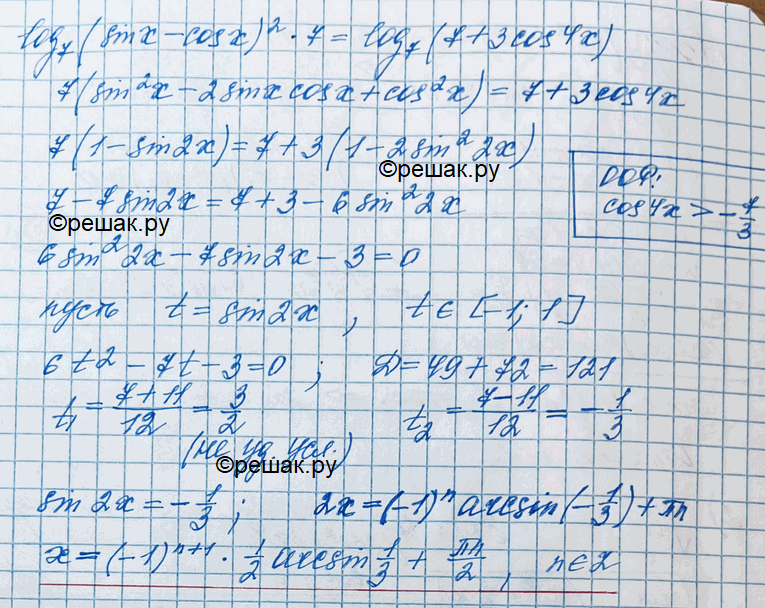 log₇(sinx-cosx)²·7 = log₇(7+3cos4x)
7(sin²x-2sinxcosx+cos²x) = 7+3cos4x
7(1-sin2x) = 7+3(1-2sin²2x)
©решак.ру
ООФ:
cos4x > -7/3
7-7sin2x = 7+3-6sin²2x
©решак.ру
6sin²2x-7sin2x-3=0
пусть t = sin2x, t ∈ [-1; 1]
6t²-7t-3=0; D=49+72=121
t₁ = (7+11)/12 = 3/2 t₂ = (7-11)/12 = -1/3
(не уд усл.)
©решак.ру
sin2x = -1/3; 2x = (-1)ⁿ arcsin(-1/3) + πn
x = (-1)ⁿ⁺¹ · 1/2 arcsin 1/3 + πn/2, n∈Z